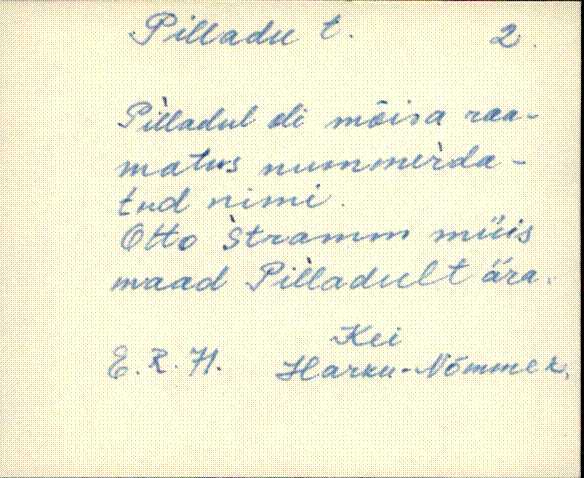 Pilladu t. 2.
Pìlladul oli mõisa raa-
matus nummerda-
tud nimi.
Otto Stramm müis
maad Pìlladult ära.
Kei
E. R. H. Harku-Nõmme k.